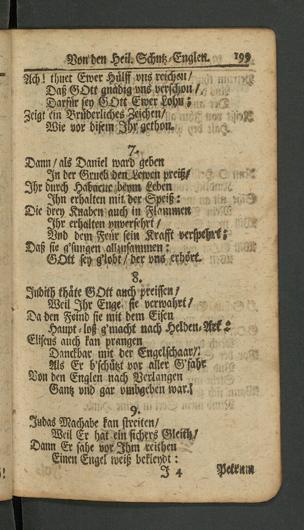 Von den Heil. Schutz-Englen. 199
Ach! thuet Ewer Hülff vns reichen/
Daß GOtt gnädig vns verschon/
Darfür sey GOtt Ewer Lohn;
Zeigt ein Brüderliches Zeichen/
Wie vor disem Ihr gethon.
7.
Dann/ als Daniel ward geben
In der Grueb den Lewen preiß/
Ihr durch Habacuc beym Leben
Ihn erhalten mit der Speiß:
Die drey Knaben auch in Flammen
Ihr erhalten unversehrt/
Und dem Feür sein Krafft verspehrt;
Daß sie g'sungen allzusammen:
GOtt sey g'lobt/ der uns erhört.
8.
Judith thäte GOtt auch preissen/
Weil Ihr Enge. sie verwahrt/
Da den Feind sie mit dem Eisen
Haupt-loß g'macht nach Helden-Art:
Eliseus auch kan prangen
Danckbar mit der Engelschaar/
Als Er b'schützt vor aller G'fahr
Von den Englen nach Verlangen
Gantz und gar umbgeben war.
9.
Judas Machabe kan streiten/
Weil Er hat ein sichers Gleith/
Dann Er sahe vor Ihm reithen
Einen Engel weiß bekleydt:
J 4 Petrum